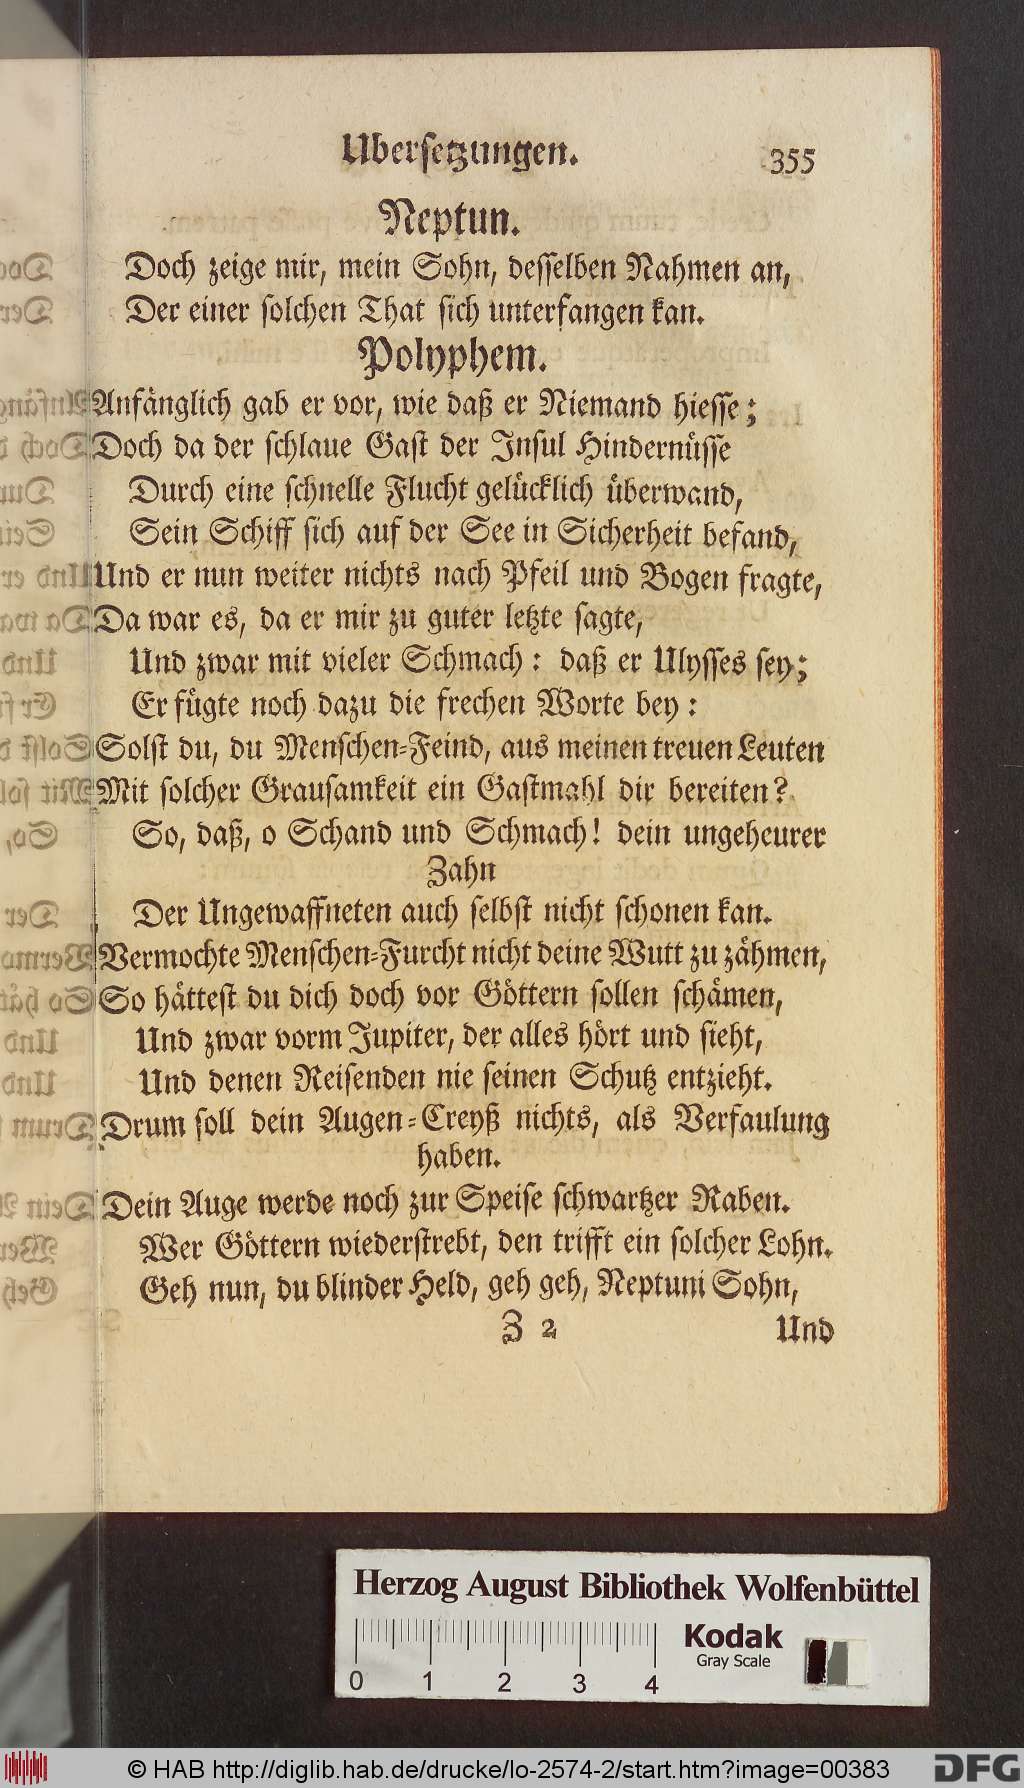 Ubersetzungen. 355
Neptun.
Doch zeige mir, mein Sohn, desselben Nahmen an,
Der einer solchen That sich unterfangen kan.
Polyphem.
Anfänglich gab er vor, wie daß er Niemand hiesse;
Doch da der schlaue Gast der Insul Hindernüsse
Durch eine schnelle Flucht gelücklich überwand,
Sein Schiff sich auf der See in Sicherheit befand,
Und er nun weiter nichts nach Pfeil und Bogen fragte,
Da war es, da er mir zu guter letzte sagte,
Und zwar mit vieler Schmach: daß er Ulysses sey;
Er fügte noch dazu die frechen Worte bey:
Solst du, du Menschen-Feind, aus meinen treuen Leuten
Mit solcher Grausamkeit ein Gastmahl dir bereiten?
So, daß, o Schand und Schmach! dein ungeheurer
Zahn
Der Ungewaffneten auch selbst nicht schonen kan.
Vermochte Menschen-Furcht nicht deine Wutt zu zähmen,
So hättest du dich doch vor Göttern sollen schämen,
Und zwar vorm Jupiter, der alles hört und sieht,
Und denen Reisenden nie seinen Schutz entzieht.
Drum soll dein Augen-Creyß nichts, als Verfaulung
haben.
Dein Auge werde noch zur Speise schwartzer Raben.
Wer Göttern wiederstrebt, den trifft ein solcher Lohn.
Geh nun, du blinder Held, geh geh, Neptuni Sohn,
Z 2 Und
Herzog August Bibliothek Wolfenbüttel
Kodak
Gray Scale
0 1 2 3 4
© HAB http://diglib.hab.de/drucke/lo-2574-2/start.htm?image=00383
DFG